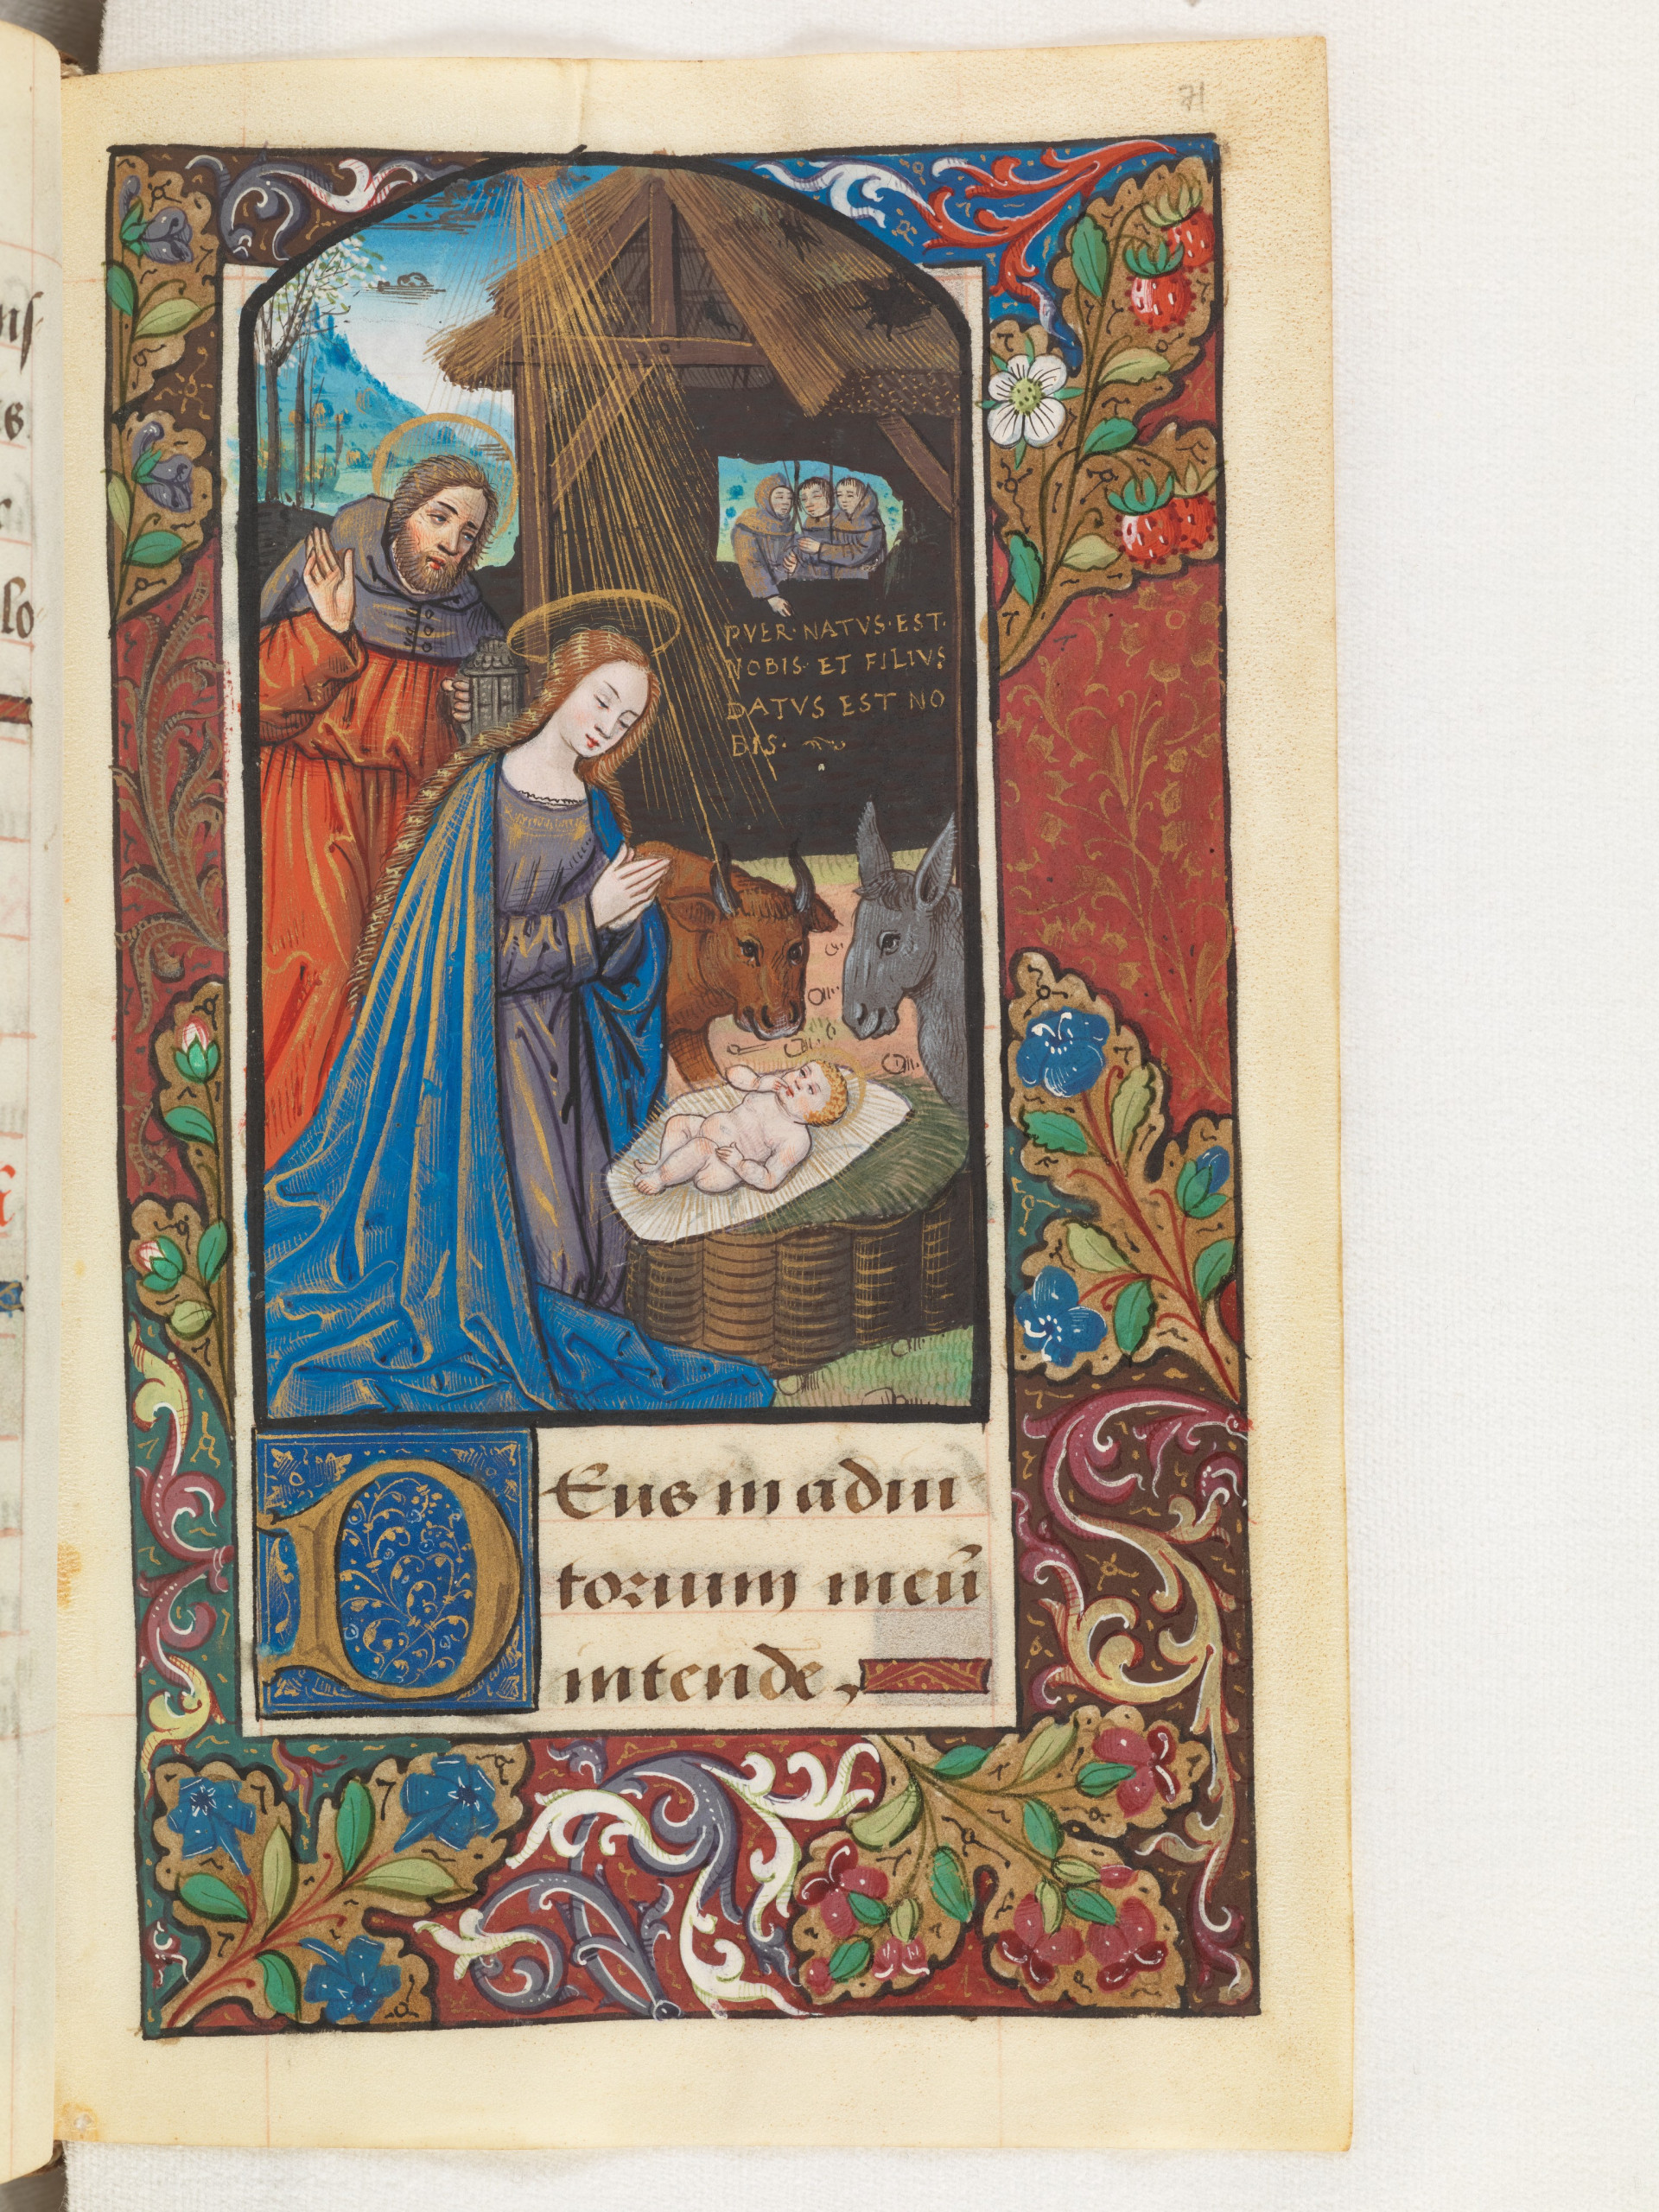 71
PVER·NATVS·EST·
NOBIS· ET FILIVS
DATVS EST NO
BIS·
DEus in adiu
torium meū
intende,